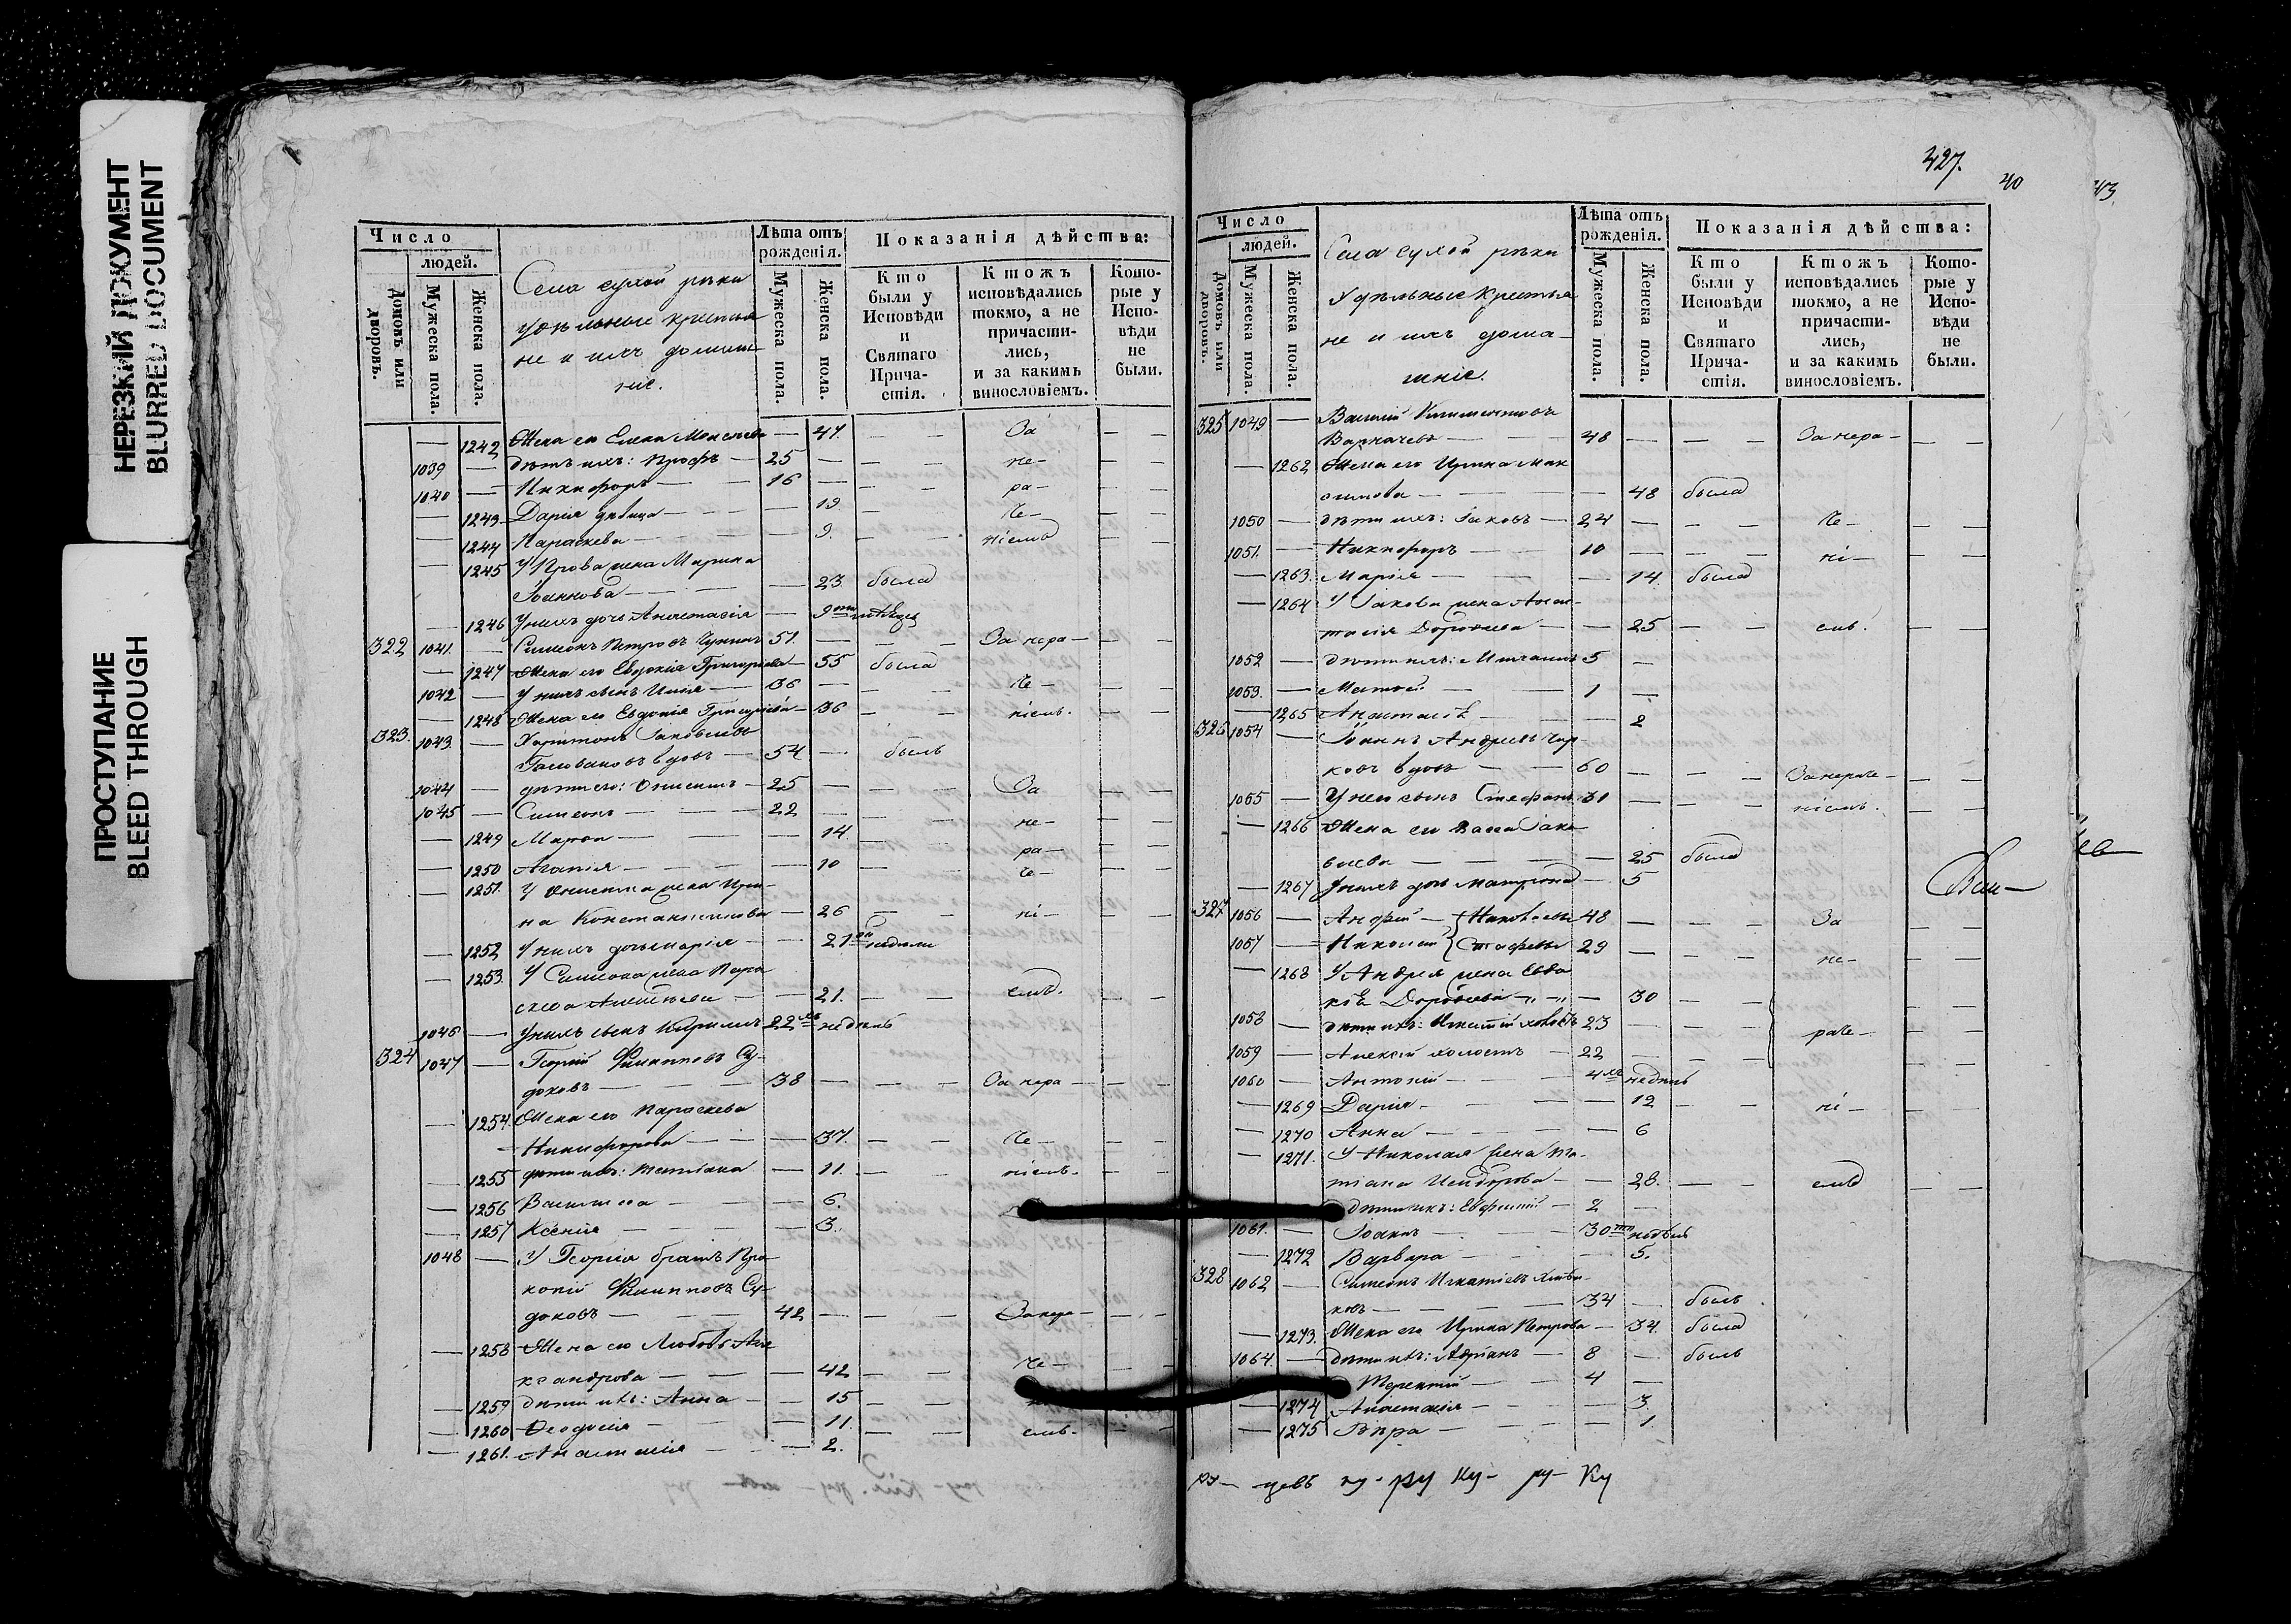 НЕРЕЗКИЙ ДОКУМЕНТ
BLURRED DOCUMENT
ПРОСТУПАНИЕ
BLEED THROUGH
Число
людей.
Домовъ или дворовъ.
Мужеска пола.
Женска пола.
Села сухой рѣки
удѣльные крестья
не и ихъ домаш
ніе.
Лѣта отъ рожденія.
Мужеска пола.
Женска пола.
Показанія дѣйства:
Кто были у Исповѣди и Святаго Прича-стія.
Ктожъ исповѣдались токмо, а не причасти-лись, и за какимъ винословіемъ.
Кото-рые у Испо-вѣди не были.
1242 Жена его Елена 47. За
1039 дѣти ихъ: 25 не-
1040 Никифоръ 16 ра-
1243 Дарія дѣвица 13. че-
1244 Параскева 9. ніемъ
1245 жена Марина
Іоаннова 23 была
1246 У нихъ дочь Анастасія
322 1041. Симеонъ Петровъ 51. За нера-
1247 Жена его Евдокія Григорьева 55 была
1042 У нихъ сынъ Илія 36 че-
1248 Жена его Евдокія Григорьева 36 ніемъ.
323. 1043. Харитонъ Іаковлевъ
вдовъ 54 былъ
1044 дѣти его: Онисимъ 25 За
1045 Симеонъ 22 не-
1249 Марѳа 14. ра-
1250 Агапія 10 че-
1251. У Онисима жена Ири-
на Константинова 26 ні-
1252 У нихъ дочь Марія недѣли
1253. У Симеона жена Пара
скева 21. емъ.
1046 У нихъ сынъ Кириллъ 22 недѣль
324 1047 Георгій Филипповъ Су-
доковъ 38 За нера-
1254. Жена его Параскева
Никифорова 37. че-
1255 дѣти ихъ: Татіана 11. ніемъ.
1256 Василисса 6.
1257 Ксенія 3.
1048 У Георгія братъ Про
копій Филипповъ Су-
доковъ 42 За нера-
1258 Жена его Любовь Але
ксандрова 42 че-
1259 дѣти ихъ: Анна 15
1260 Ѳеодосія 11. емъ.
1261. Анастасія 2.
427.
40
43.
Число
людей.
Домовъ или дворовъ.
Мужеска пола.
Женска пола.
Села сухой рѣки
Удѣльные крестья
не и ихъ дома-
шніе.
Лѣта отъ рожденія.
Мужеска пола.
Женска пола.
Показанія дѣйства:
Кто были у Исповѣди и Святаго Прича-стія.
Ктожъ исповѣдались токмо, а не причасти-лись, и за какимъ винословіемъ.
Кото-рые у Испо-вѣди не были.
325 1049 Василій Климентовъ
48 За нера-
1262 Жена его Ирина Мак
симова 48 была
1050 дѣти ихъ: Іаковъ 24 че-
1051. Никифоръ 10 ні-
1263. Марія 14. была
1264 У Іакова жена Анас-
тасія Дороѳеева 25 емъ.
1052 дѣти ихъ: 5
1053. Матѳей 1
1265 Анастасія 2
326 1054 Іоаннъ Андреевъ
вдовъ 60 За нераче-
1055 У него сынъ Стефанъ 31 ніемъ.
1266 Жена его Васса Іако-
влева 25 была
1267 У нихъ дочь Матрона 5
327 1056 Андрей 48 За
1057 Николай 29 не-
1268 У Андрея жена Евдо
кія Дороѳеева 30
1058 дѣти ихъ: Игнатій холостъ 23 раче-
1059 Алексій холостъ 22
1060 Антоній 4 недѣль
1269 Дарія 12 ні-
1270 Анна 6
1271. У Николая жена Та-
тіана Исидорова 28. емъ
дѣти ихъ: Евфимій 2
1061. Іоаннъ 30 недѣль
1272 Варвара 5.
328 1062 Симеонъ Игнатіевъ
ковъ 34 былъ
1273. Жена его Ирина Петрова 34. была
1064. дѣти ихъ: Адріанъ 8 былъ
Терентій 4
1274 Анастасія 3.
1275 Вѣра 1.